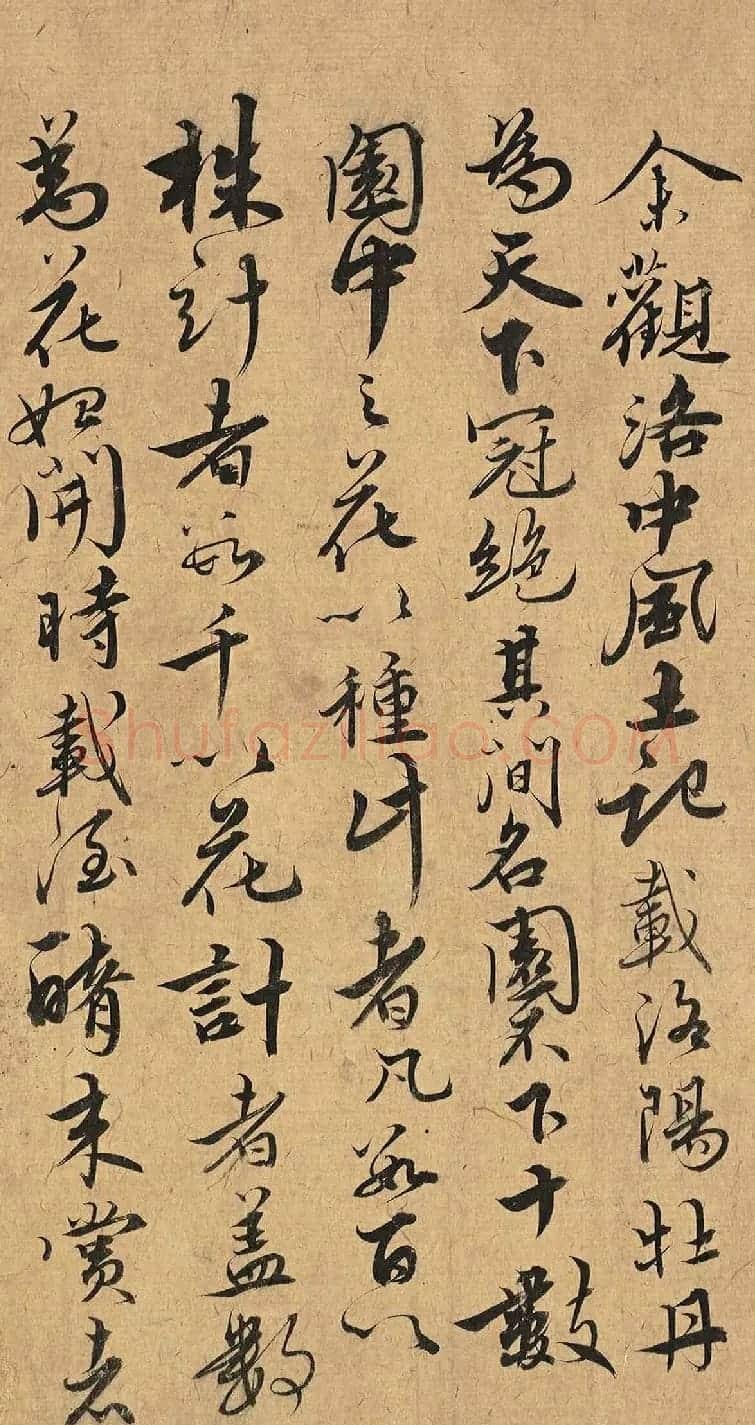 余觀洛中風土記載洛陽牡丹
為天下冠絕其間名園不下十數
園中之花以種計者凡數百以
株計者數千以花計者蓋數
萬花始開時載酒來賞者
Shufaziliao.COM